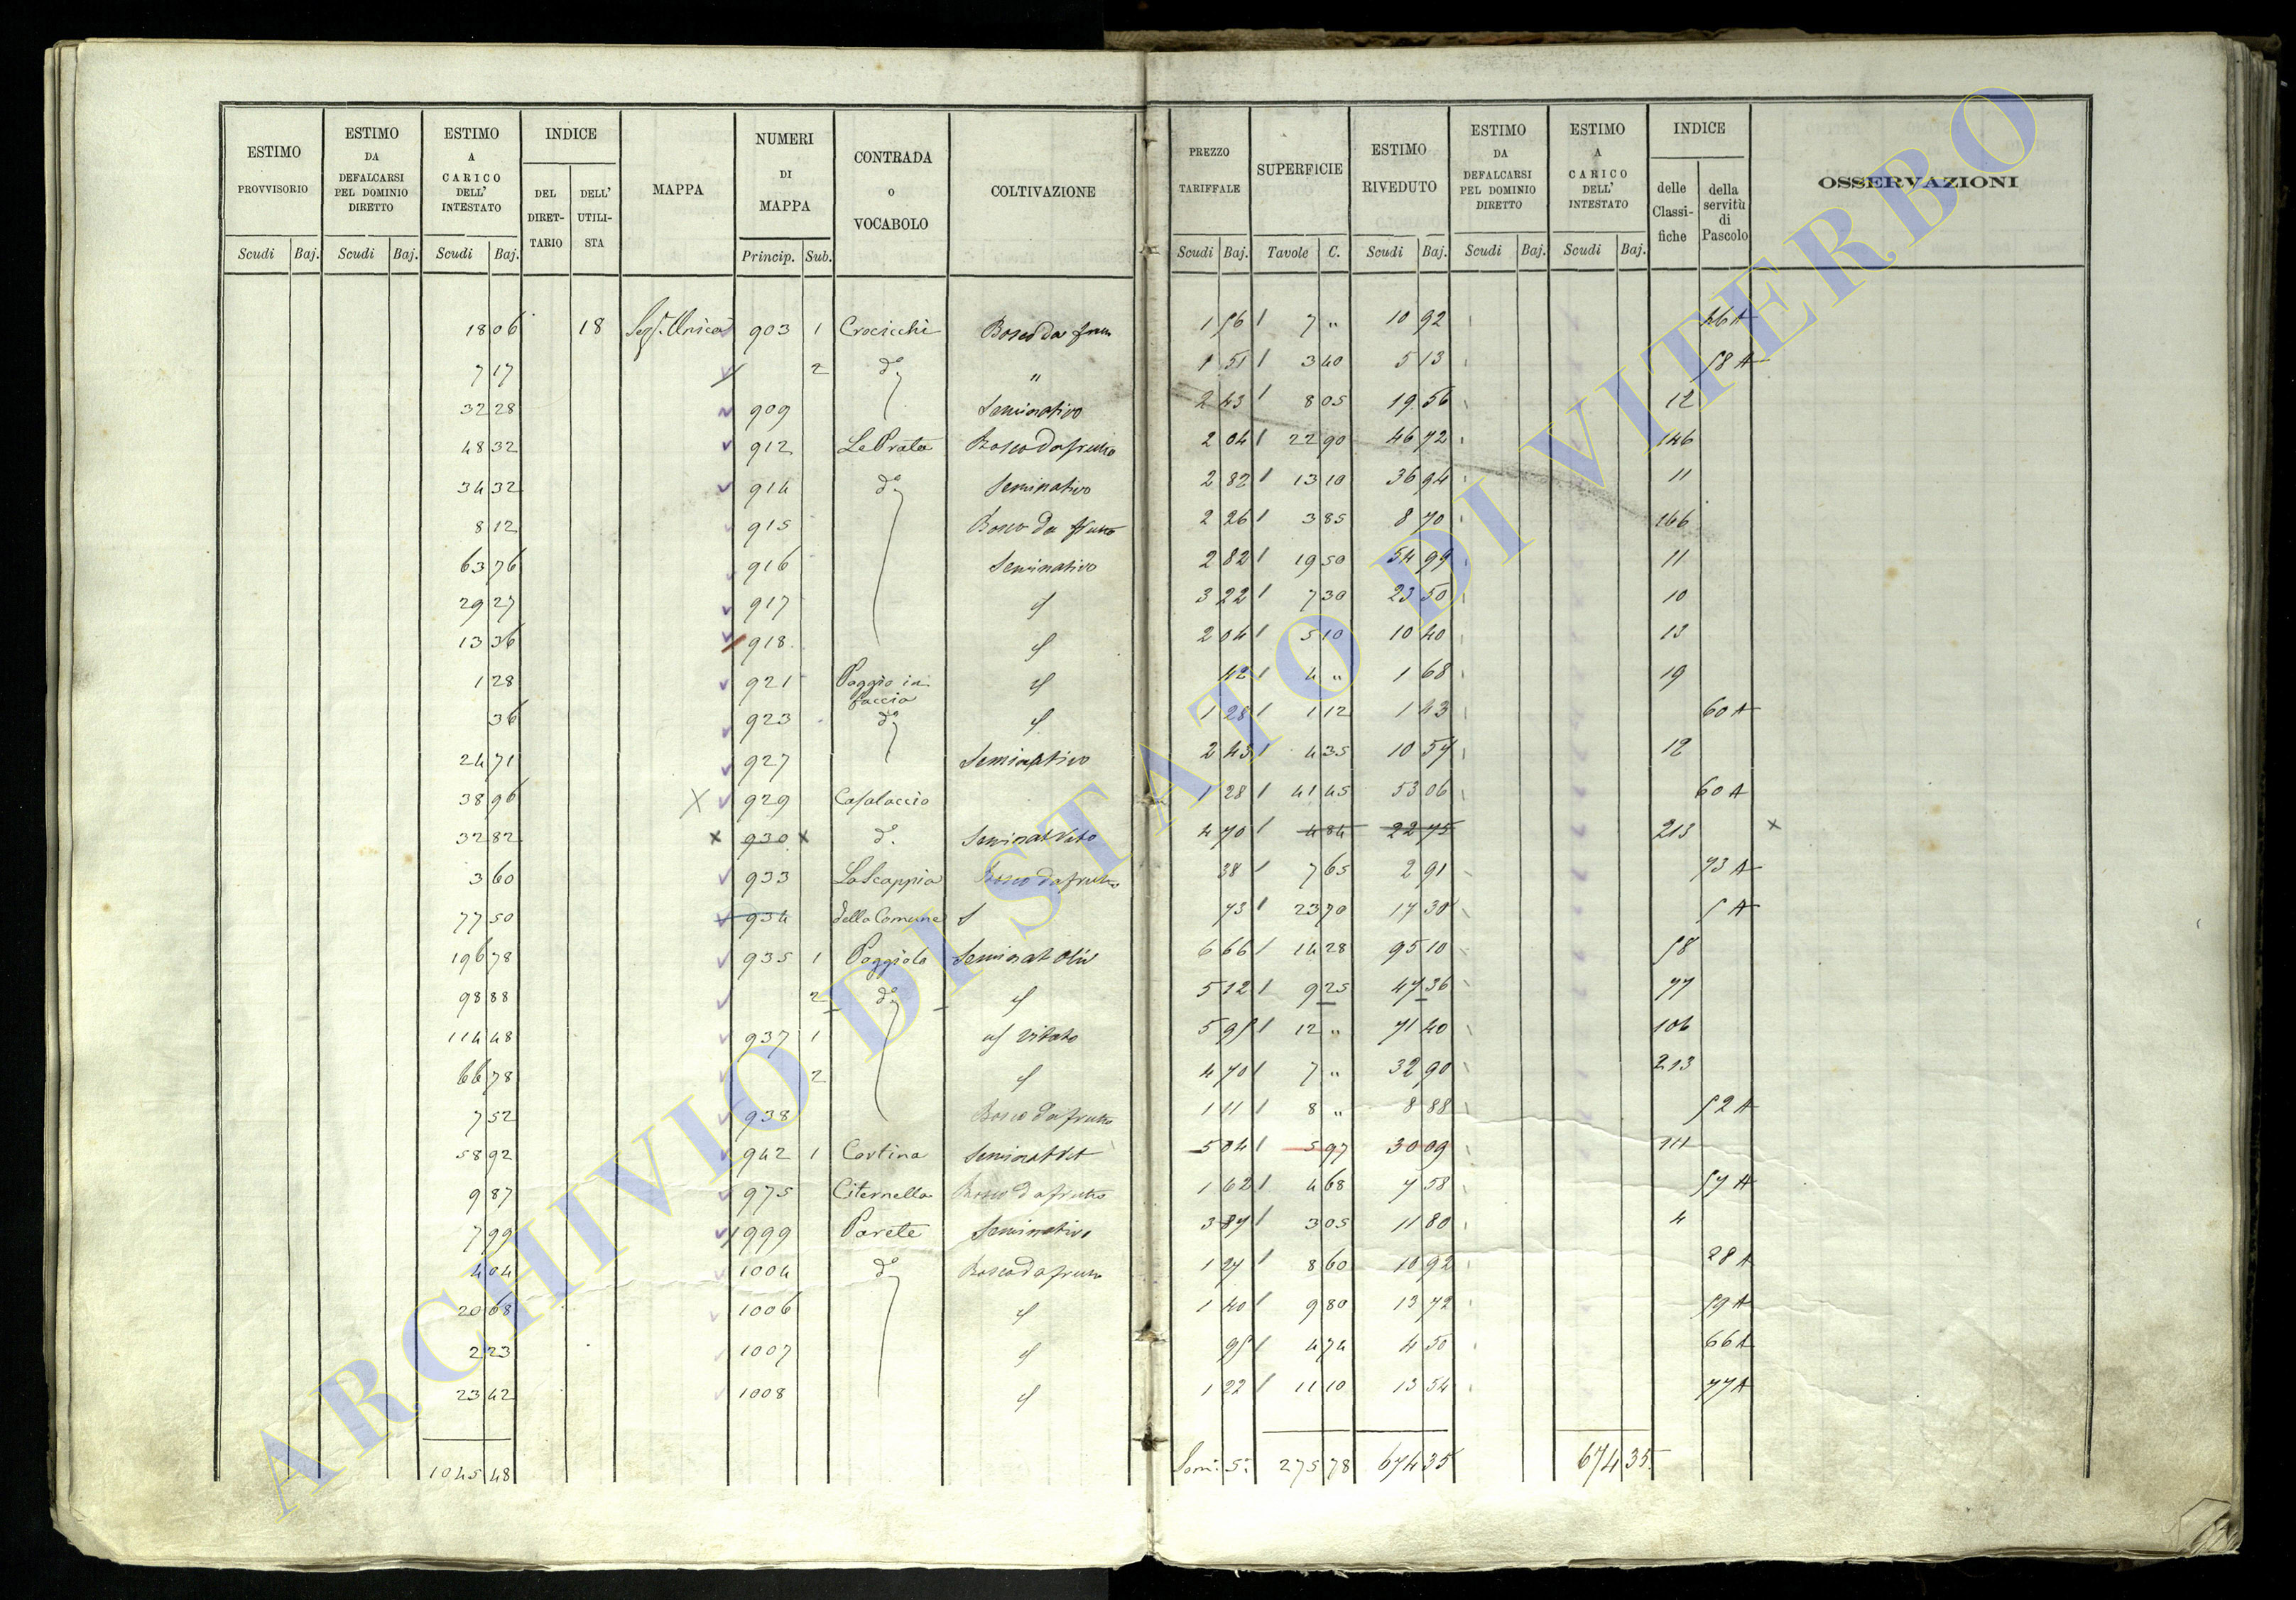 ESTIMO PROVVISORIO
ESTIMO DA DEFALCARSI PEL DOMINIO DIRETTO
ESTIMO A CARICO DELL' INTESTATO
INDICE
DEL DIRET-TARIO
DELL' UTILI-STA
MAPPA
NUMERI DI MAPPA
CONTRADA o VOCABOLO
COLTIVAZIONE
PREZZO TARIFFALE
SUPERFICIE
ESTIMO RIVEDUTO
ESTIMO DA DEFALCARSI PEL DOMINIO DIRETTO
ESTIMO A CARICO DELL' INTESTATO
INDICE
delle Classi-fiche
della servitù di Pascolo
OSSERVAZIONI
Scudi Baj. Scudi Baj. Scudi Baj. Princip. Sub. Scudi Baj. Tavole C. Scudi Baj. Scudi Baj. Scudi Baj.
18 06 18 903 1 Crocicchi Bosco da 1 56 7 " 10 92 46 A
7 17 2 do " 1 51 3 40 5 13 58 A
32 28 909 Seminativo 2 43 8 05 19 56 12
48 32 912 Le Prata Bosco da frutto 2 04 22 90 46 72 146
34 32 914 do Seminativo 2 82 13 10 36 94 11
8 12 915 Bosco da frutto 2 26 3 85 8 70 166
63 76 916 Seminativo 2 82 19 50 54 99 11
29 27 917 3 22 7 30 23 50 10
13 36 918 2 04 5 10 10 40 13
1 28 921 Poggio in faccia 42 4 " 1 68 19
36 923 do 1 28 1 12 1 43 60 A
24 71 927 Seminativo 2 43 4 35 10 57 12
38 96 X 929 Casalaccio 1 28 41 45 53 06 60 A
32 82 x 930 x do Seminat Vito 4 70 4 84 22 75 213 x
3 60 933 La Scappia Bosco da frutto 38 7 65 2 91 73 A
77 50 934 della Comune 73 23 70 17 30 5 A
196 78 935 1 Poggiolo Seminat Oliv 6 66 14 28 95 10 58
98 88 2 do 5 12 9 25 47 36 77
114 48 937 1 vitato 5 95 12 " 71 40 106
66 78 2 4 70 7 " 32 90 213
7 52 938 Bosco da frutto 1 11 8 " 8 88 52 A
58 92 942 1 Cortina Seminat Vit 5 04 5 97 30 09 111
9 87 975 Citernella Bosco da frutto 1 62 4 68 7 58 57 A
7 99 999 Parete Seminativo 3 87 3 05 11 80 4
4 04 1004 do Bosco da frutto 1 27 8 60 10 92 28 A
20 68 1006 1 40 9 80 13 72 59 A
2 23 1007 95 4 74 4 50 66 A
23 42 1008 1 22 11 10 13 54 77 A
1045 48 275 78 674 35 674 35
ARCHIVIO DI STATO DI VITERBO